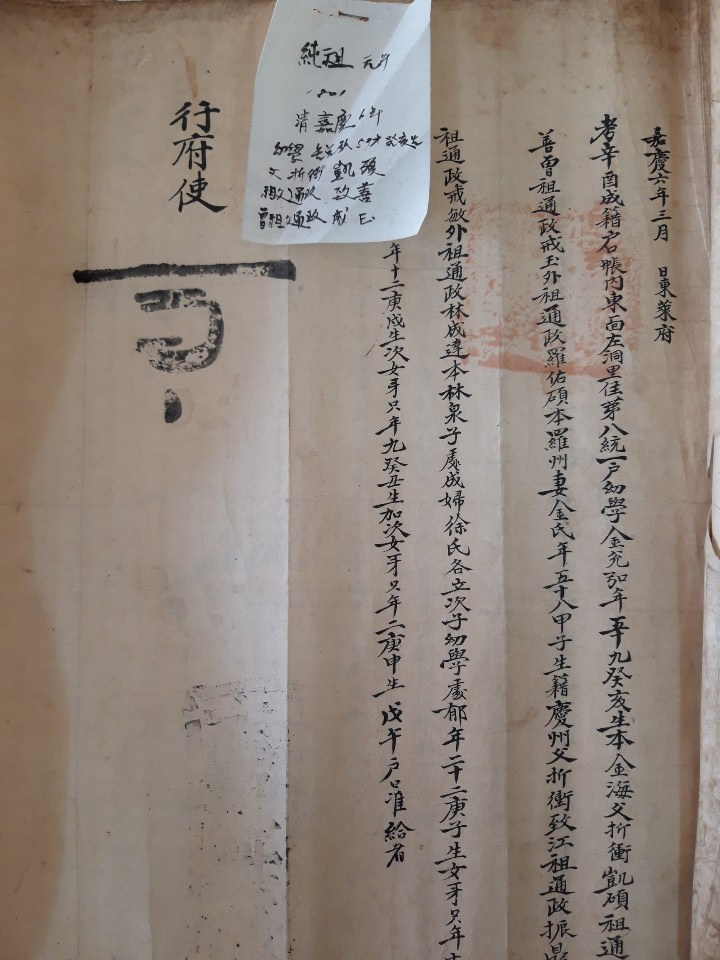 嘉慶六年三月 日東萊府
考辛酉成籍宕帳內東面左洞里住第八統一戶幼學金兌弘年五十九癸亥生本金海父折衝凱碩祖通
善曾祖通政戒玉外祖通政羅佑碩本羅州妻金氏年五十八甲子生籍慶州父折衝致江祖通政振
祖通政戒敏外祖通政林成達本林泉子處成婦徐氏各立次子幼學處郁年二十二庚子生女牙只年十
年十二庚戌生次女牙只年九癸丑生加次女牙只年二庚申生 戊午戶口准給者
行府使
純祖 元年
1801
清嘉慶 6年
幼學 59 癸亥生
父 折衝 凱碩
祖父 通政 致善
曾祖父 通政 戒玉